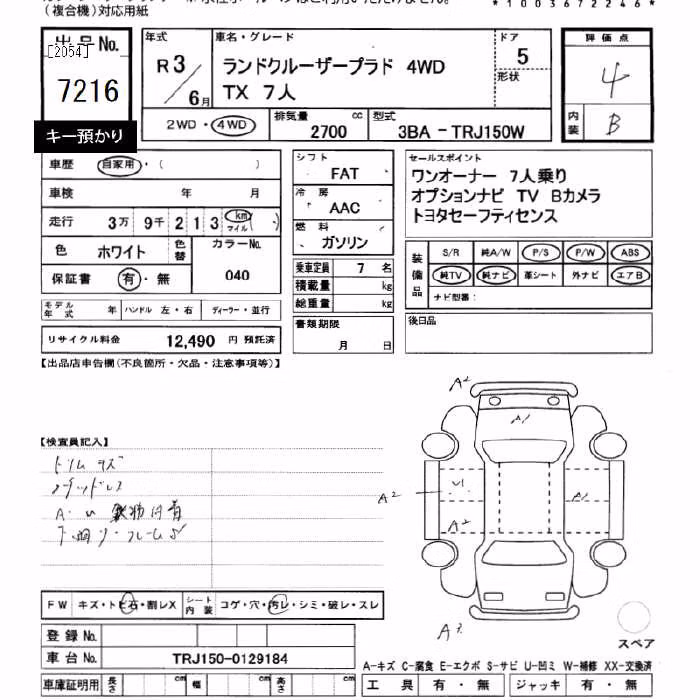 (複合機)対応用紙
*1003672246*
出品No.
[2054]
7216
キー預かり
年式
R3/6月
車名・グレード
ランドクルーザープラド 4WD
TX 7人
ドア
5
形状
評価点
4
内装
B
2WD・4WD
排気量
2700 cc
型式
3BA-TRJ150W
車歴 自家用・( )
車検 年 月
走行 3万 9千 2 1 3 km マイル ( )
色 ホワイト 色替 カラーNo.
040
保証書 有・無
モデル年式 年 ハンドル 左・右 ディーラー・並行
リサイクル料金 12,490 円 預託済
シフト
FAT
冷房
AAC
燃料
ガソリン
乗車定員 7 名
積載量 kg
総重量 kg
書類期限
月 日
セールスポイント
ワンオーナー 7人乗り
オプションナビ TV Bカメラ
トヨタセーフティセンス
装備品
S/R 純A/W P/S P/W ABS
純TV 純ナビ 革シート 外ナビ エアB
ナビ型番:
後日品
【出品店申告欄(不良箇所・欠品・注意事項等)】
【検査員記入】
A2
A1
A2
U1
A1
A2
A2
スペア
FW キズ・トビ石・割レX
シート内装 コゲ・穴・汚レ・シミ・破レ・スレ
登録No.
車台No. TRJ150-0129184
車庫証明用 長さ cm 幅 cm 高さ cm
A-キズ C-腐食 E-エクボ S-サビ U-凹ミ W-補修 XX-交換済
工具 有・無 ジャッキ 有・無